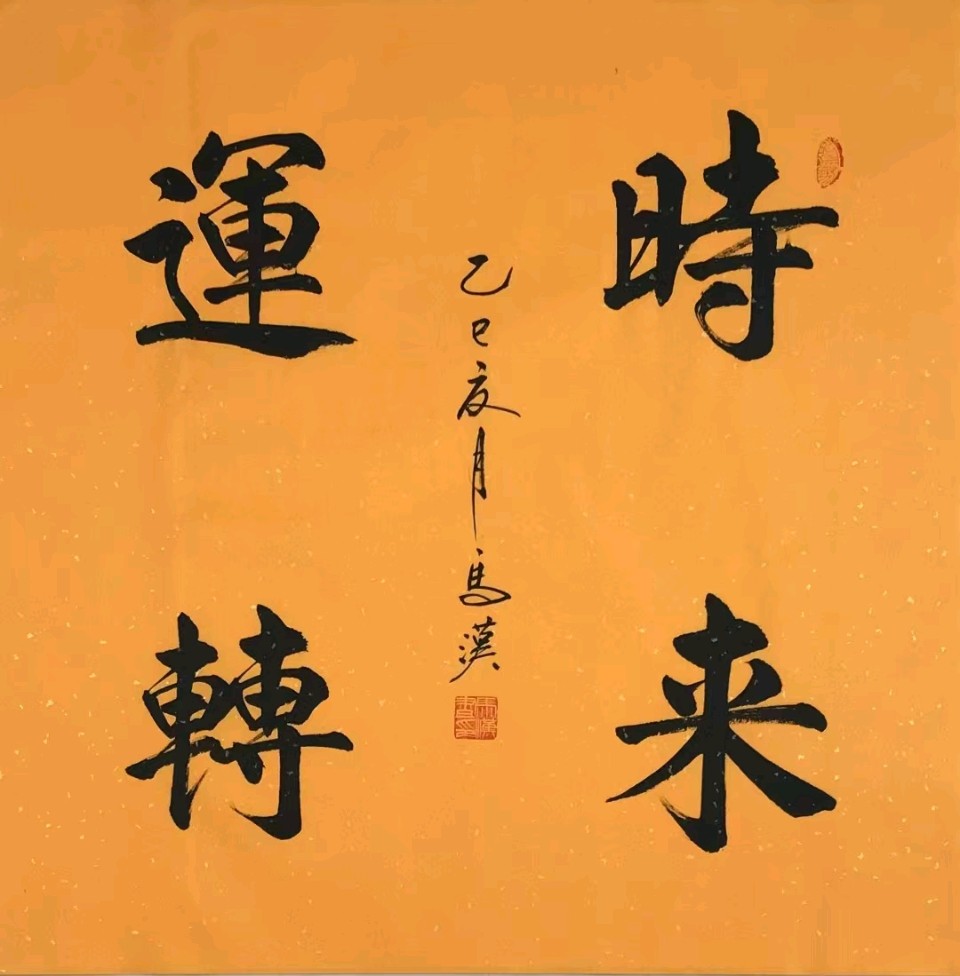 時来
運轉
乙巳亥月馬漢